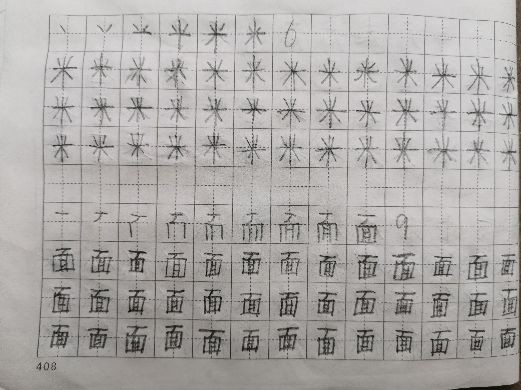 丶 丷 䒑 半 米 米 6
米 米 米 米 米 米 米 米 米 米 米 米 米
米 米 米 米 米 米 米 米 米 米 米 米 米
米 米 米 米 米 米 米 米 米 米 米 米 米
一 丆 面 9
面 面 面 面 面 面 面 面 面 面 面 面 面
面 面 面 面 面 面 面 面 面 面 面 面 面
面 面 面 面 面 面 面 面 面 面 面 面 面
408